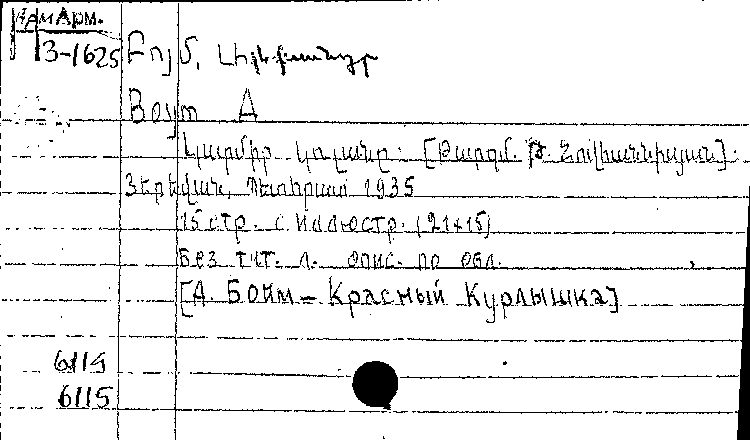 АрмАрм.
П 3-1625
Բոյմ, Ալեքսանդր
Boym A
Կարմիր կռլանը. [Թարգմ. Թ. Հովհաննիսյան].
Յերեվան, Պետհրատ 1935
15 стр. с иллюстр. (21x15)
Без тит. л. опис. по обл.
[А. Бойм - Красный Курлышка]
6114
6115